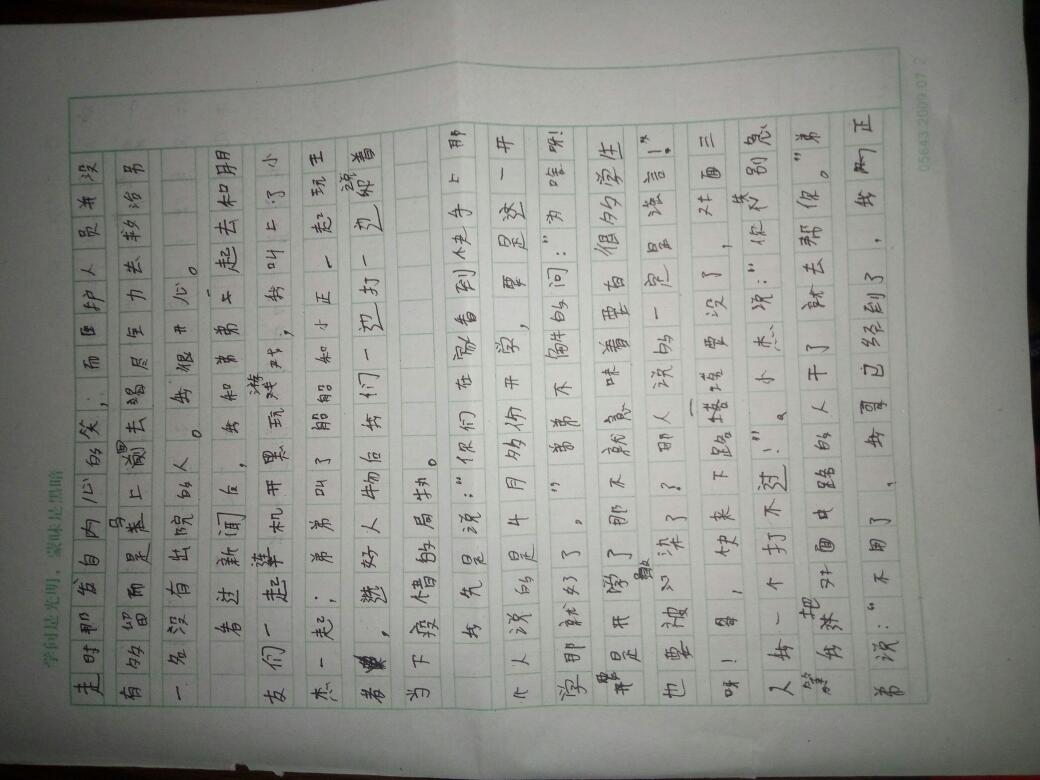 学问是光明，蒙昧是黑暗
走时那发自内心的笑，而医护人员并没
有多留而是马上去竭尽全力去救治另
一名没有出院的人。我很开心。
看过新闻后，我和弟弟一起去和朋
友们一起机开黑玩游戏，我叫上了小
杰一起；弟弟叫了船船和小正一起玩王
者，选好人物后我们一边打一边说着
当下疫情的局势。
我先是说：“你们在家看到快手上那
个人说的是4月多份开学，要是这一开
学那就好了。”弟弟不解的问：“为啥呀！
要是开学了那不就意味着要有很多学生
也要被感染了？那人说的一定是谎言！”
呀！哥，快来下路塔要没了，对面三
人我一个打不过！”。小杰说：“你别急
等我把对面中路的人干了就去帮你。”弟
弟说：“不用了，我哥已经到了，我阿正
05643.2009.07 2